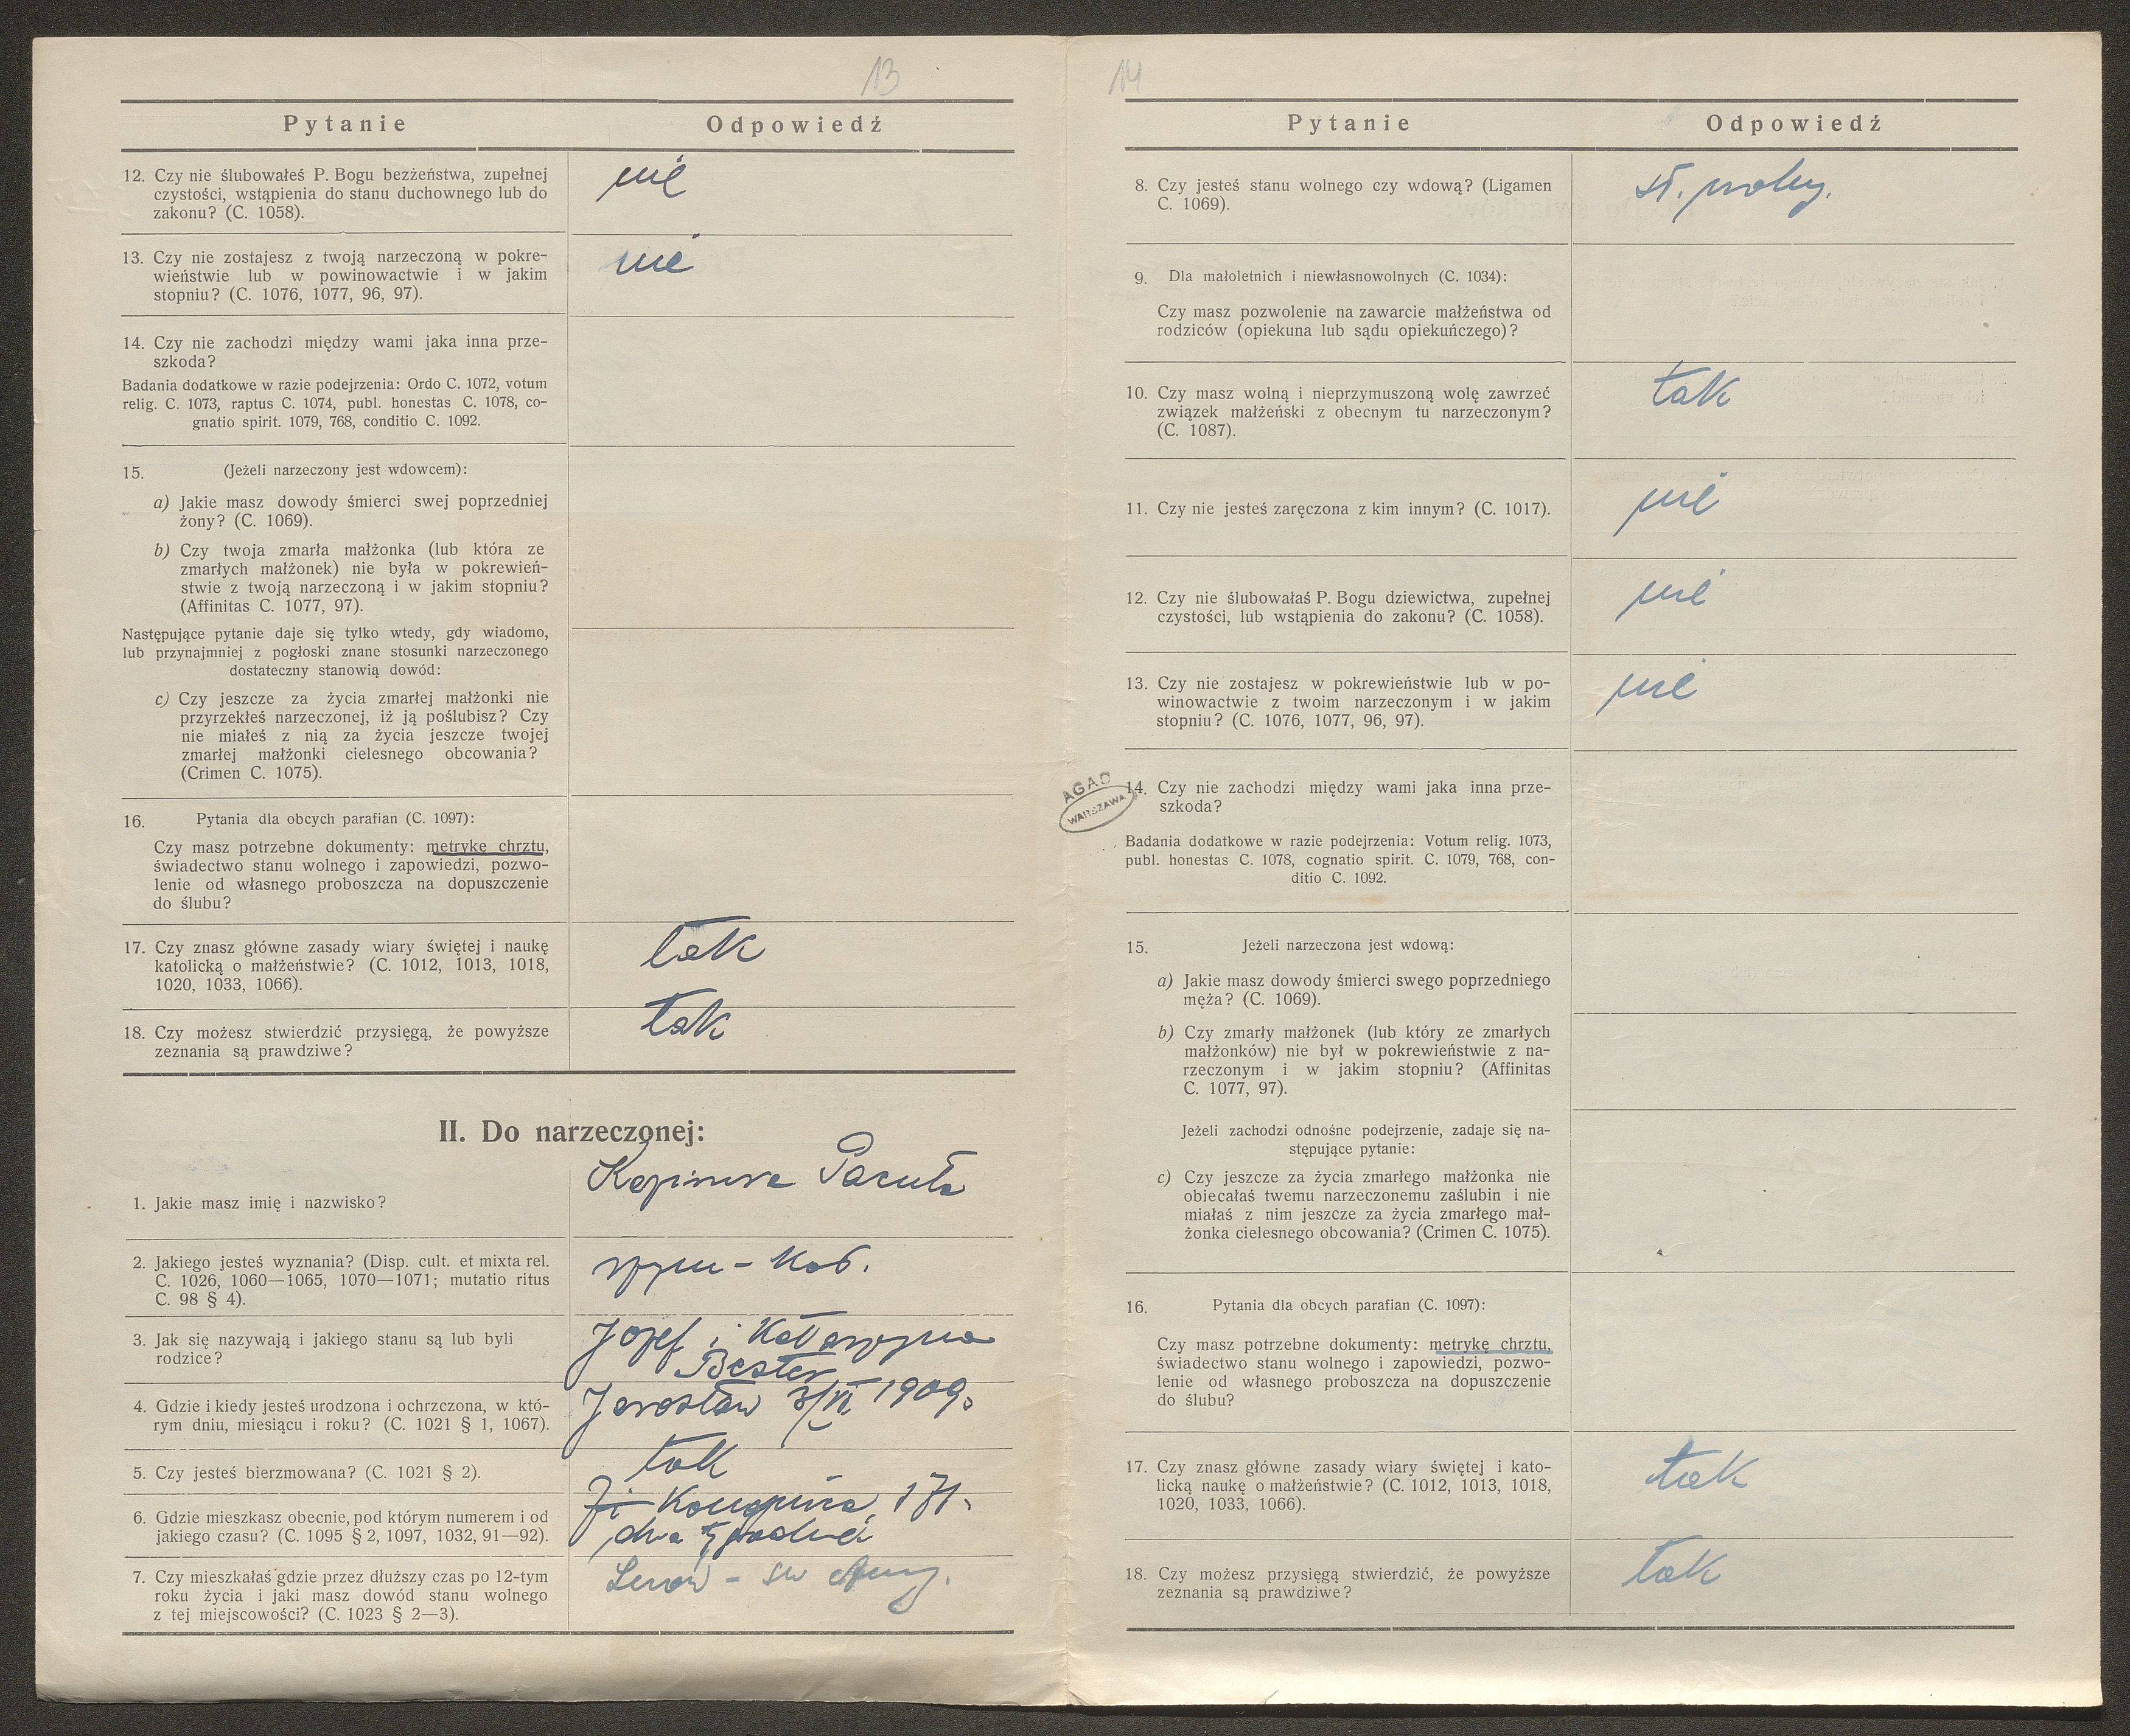 13
Pytanie
Odpowiedź
12. Czy nie ślubowałeś P. Bogu bezżeństwa, zupełnej
czystości, wstąpienia do stanu duchownego lub do
zakonu? (C. 1058).
nie
13. Czy nie zostajesz z twoją narzeczoną w pokre-
wieństwie lub w powinowactwie i w jakim
stopniu? (C. 1076, 1077, 96, 97).
nie
14. Czy nie zachodzi między wami jaka inna prze-
szkoda?
Badania dodatkowe w razie podejrzenia: Ordo C. 1072, votum
relig. C. 1073, raptus C. 1074, publ. honestas C. 1078, co-
gnatio spirit. 1079, 768, conditio C. 1092.
15. (Jeżeli narzeczony jest wdowcem):
a) Jakie masz dowody śmierci swej poprzedniej
żony? (C. 1069).
b) Czy twoja zmarła małżonka (lub która ze
zmarłych małżonek) nie była w pokrewień-
stwie z twoją narzeczoną i w jakim stopniu?
(Affinitas C. 1077, 97).
Następujące pytanie daje się tylko wtedy, gdy wiadomo,
lub przynajmniej z pogłoski znane stosunki narzeczonego
dostateczny stanowią dowód:
c) Czy jeszcze za życia zmarłej małżonki nie
przyrzekłeś narzeczonej, iż ją poślubisz? Czy
nie miałeś z nią za życia jeszcze twojej
zmarłej małżonki cielesnego obcowania?
(Crimen C. 1075).
16. Pytania dla obcych parafian (C. 1097):
Czy masz potrzebne dokumenty: metrykę chrztu,
świadectwo stanu wolnego i zapowiedzi, pozwo-
lenie od własnego proboszcza na dopuszczenie
do ślubu?
17. Czy znasz główne zasady wiary świętej i naukę
katolicką o małżeństwie? (C. 1012, 1013, 1018,
1020, 1033, 1066).
tak
18. Czy możesz stwierdzić przysięgą, że powyższe
zeznania są prawdziwe?
tak
II. Do narzeczonej:
1. Jakie masz imię i nazwisko?
Kazimiera Pacuła
2. Jakiego jesteś wyznania? (Disp. cult. et mixta rel.
C. 1026, 1060—1065, 1070—1071; mutatio ritus
C. 98 § 4).
rzym-kat.
3. Jak się nazywają i jakiego stanu są lub byli
rodzice?
Józef i Katarzyna
Bester
4. Gdzie i kiedy jesteś urodzona i ochrzczona, w któ-
rym dniu, miesiącu i roku? (C. 1021 § 1, 1067).
Jarosław 3/VI 1909.
5. Czy jesteś bierzmowana? (C. 1021 § 2).
tak
6. Gdzie mieszkasz obecnie, pod którym numerem i od
jakiego czasu? (C. 1095 § 2, 1097, 1032, 91—92).
171.
dwa tygodnie
7. Czy mieszkałaś gdzie przez dłuższy czas po 12-tym
roku życia i jaki masz dowód stanu wolnego
z tej miejscowości? (C. 1023 § 2—3).
Lwów - św
14
Pytanie
Odpowiedź
8. Czy jesteś stanu wolnego czy wdową? (Ligamen
C. 1069).
st. wolny.
9. Dla małoletnich i niewłasnowolnych (C. 1034):
Czy masz pozwolenie na zawarcie małżeństwa od
rodziców (opiekuna lub sądu opiekuńczego)?
10. Czy masz wolną i nieprzymuszoną wolę zawrzeć
związek małżeński z obecnym tu narzeczonym?
(C. 1087).
tak
11. Czy nie jesteś zaręczona z kim innym? (C. 1017).
nie
12. Czy nie ślubowałaś P. Bogu dziewictwa, zupełnej
czystości, lub wstąpienia do zakonu? (C. 1058).
nie
13. Czy nie zostajesz w pokrewieństwie lub w po-
winowactwie z twoim narzeczonym i w jakim
stopniu? (C. 1076, 1077, 96, 97).
nie
AGAD
WARSZAWA
14. Czy nie zachodzi między wami jaka inna prze-
szkoda?
Badania dodatkowe w razie podejrzenia: Votum relig. 1073,
publ. honestas C. 1078, cognatio spirit. C. 1079, 768, con-
ditio C. 1092.
15. Jeżeli narzeczona jest wdową:
a) Jakie masz dowody śmierci swego poprzedniego
męża? (C. 1069).
b) Czy zmarły małżonek (lub który ze zmarłych
małżonków) nie był w pokrewieństwie z na-
rzeczonym i w jakim stopniu? (Affinitas
C. 1077, 97).
Jeżeli zachodzi odnośne podejrzenie, zadaje się na-
stępujące pytanie:
c) Czy jeszcze za życia zmarłego małżonka nie
obiecałaś twemu narzeczonemu zaślubin i nie
miałaś z nim jeszcze za życia zmarłego mał-
żonka cielesnego obcowania? (Crimen C. 1075).
16. Pytania dla obcych parafian (C. 1097):
Czy masz potrzebne dokumenty: metrykę chrztu,
świadectwo stanu wolnego i zapowiedzi, pozwo-
lenie od własnego proboszcza na dopuszczenie
do ślubu?
17. Czy znasz główne zasady wiary świętej i kato-
licką naukę o małżeństwie? (C. 1012, 1013, 1018,
1020, 1033, 1066).
tak
18. Czy możesz przysięgą stwierdzić, że powyższe
zeznania są prawdziwe?
tak